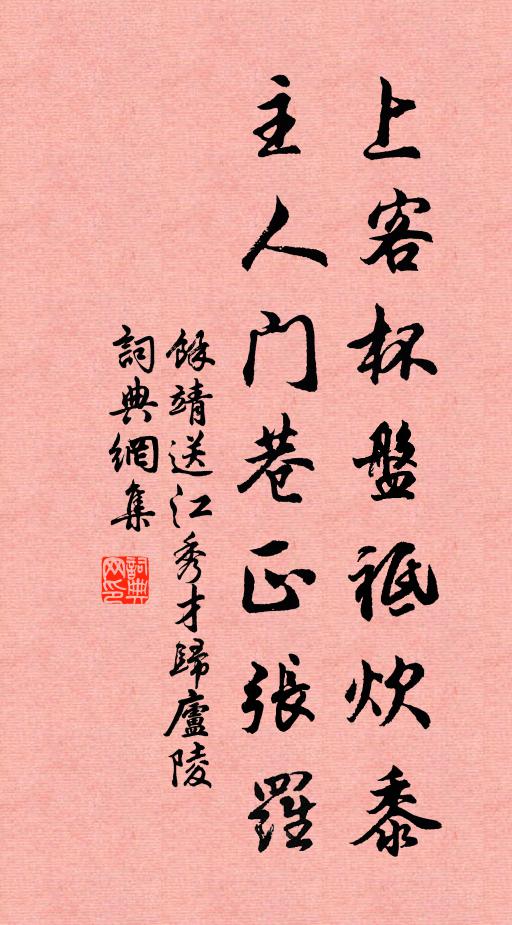 上客杯盤祗炊黍
主人門巷正張羅
餘靖送江秀才歸廬陵
詞典網集
詞典网印